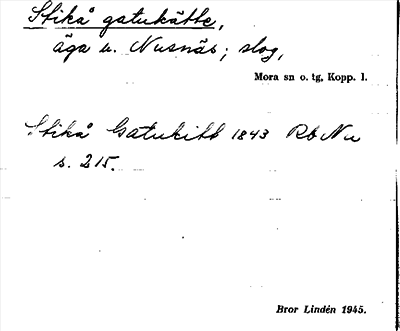 Stikå gatukätte,
äga u. Nusnäs; slog,
Mora sn o. tg, Kopp. l.
Stikå Gatukitt 1843 Rb Nu
s. 215.
Bror Lindén 1945.